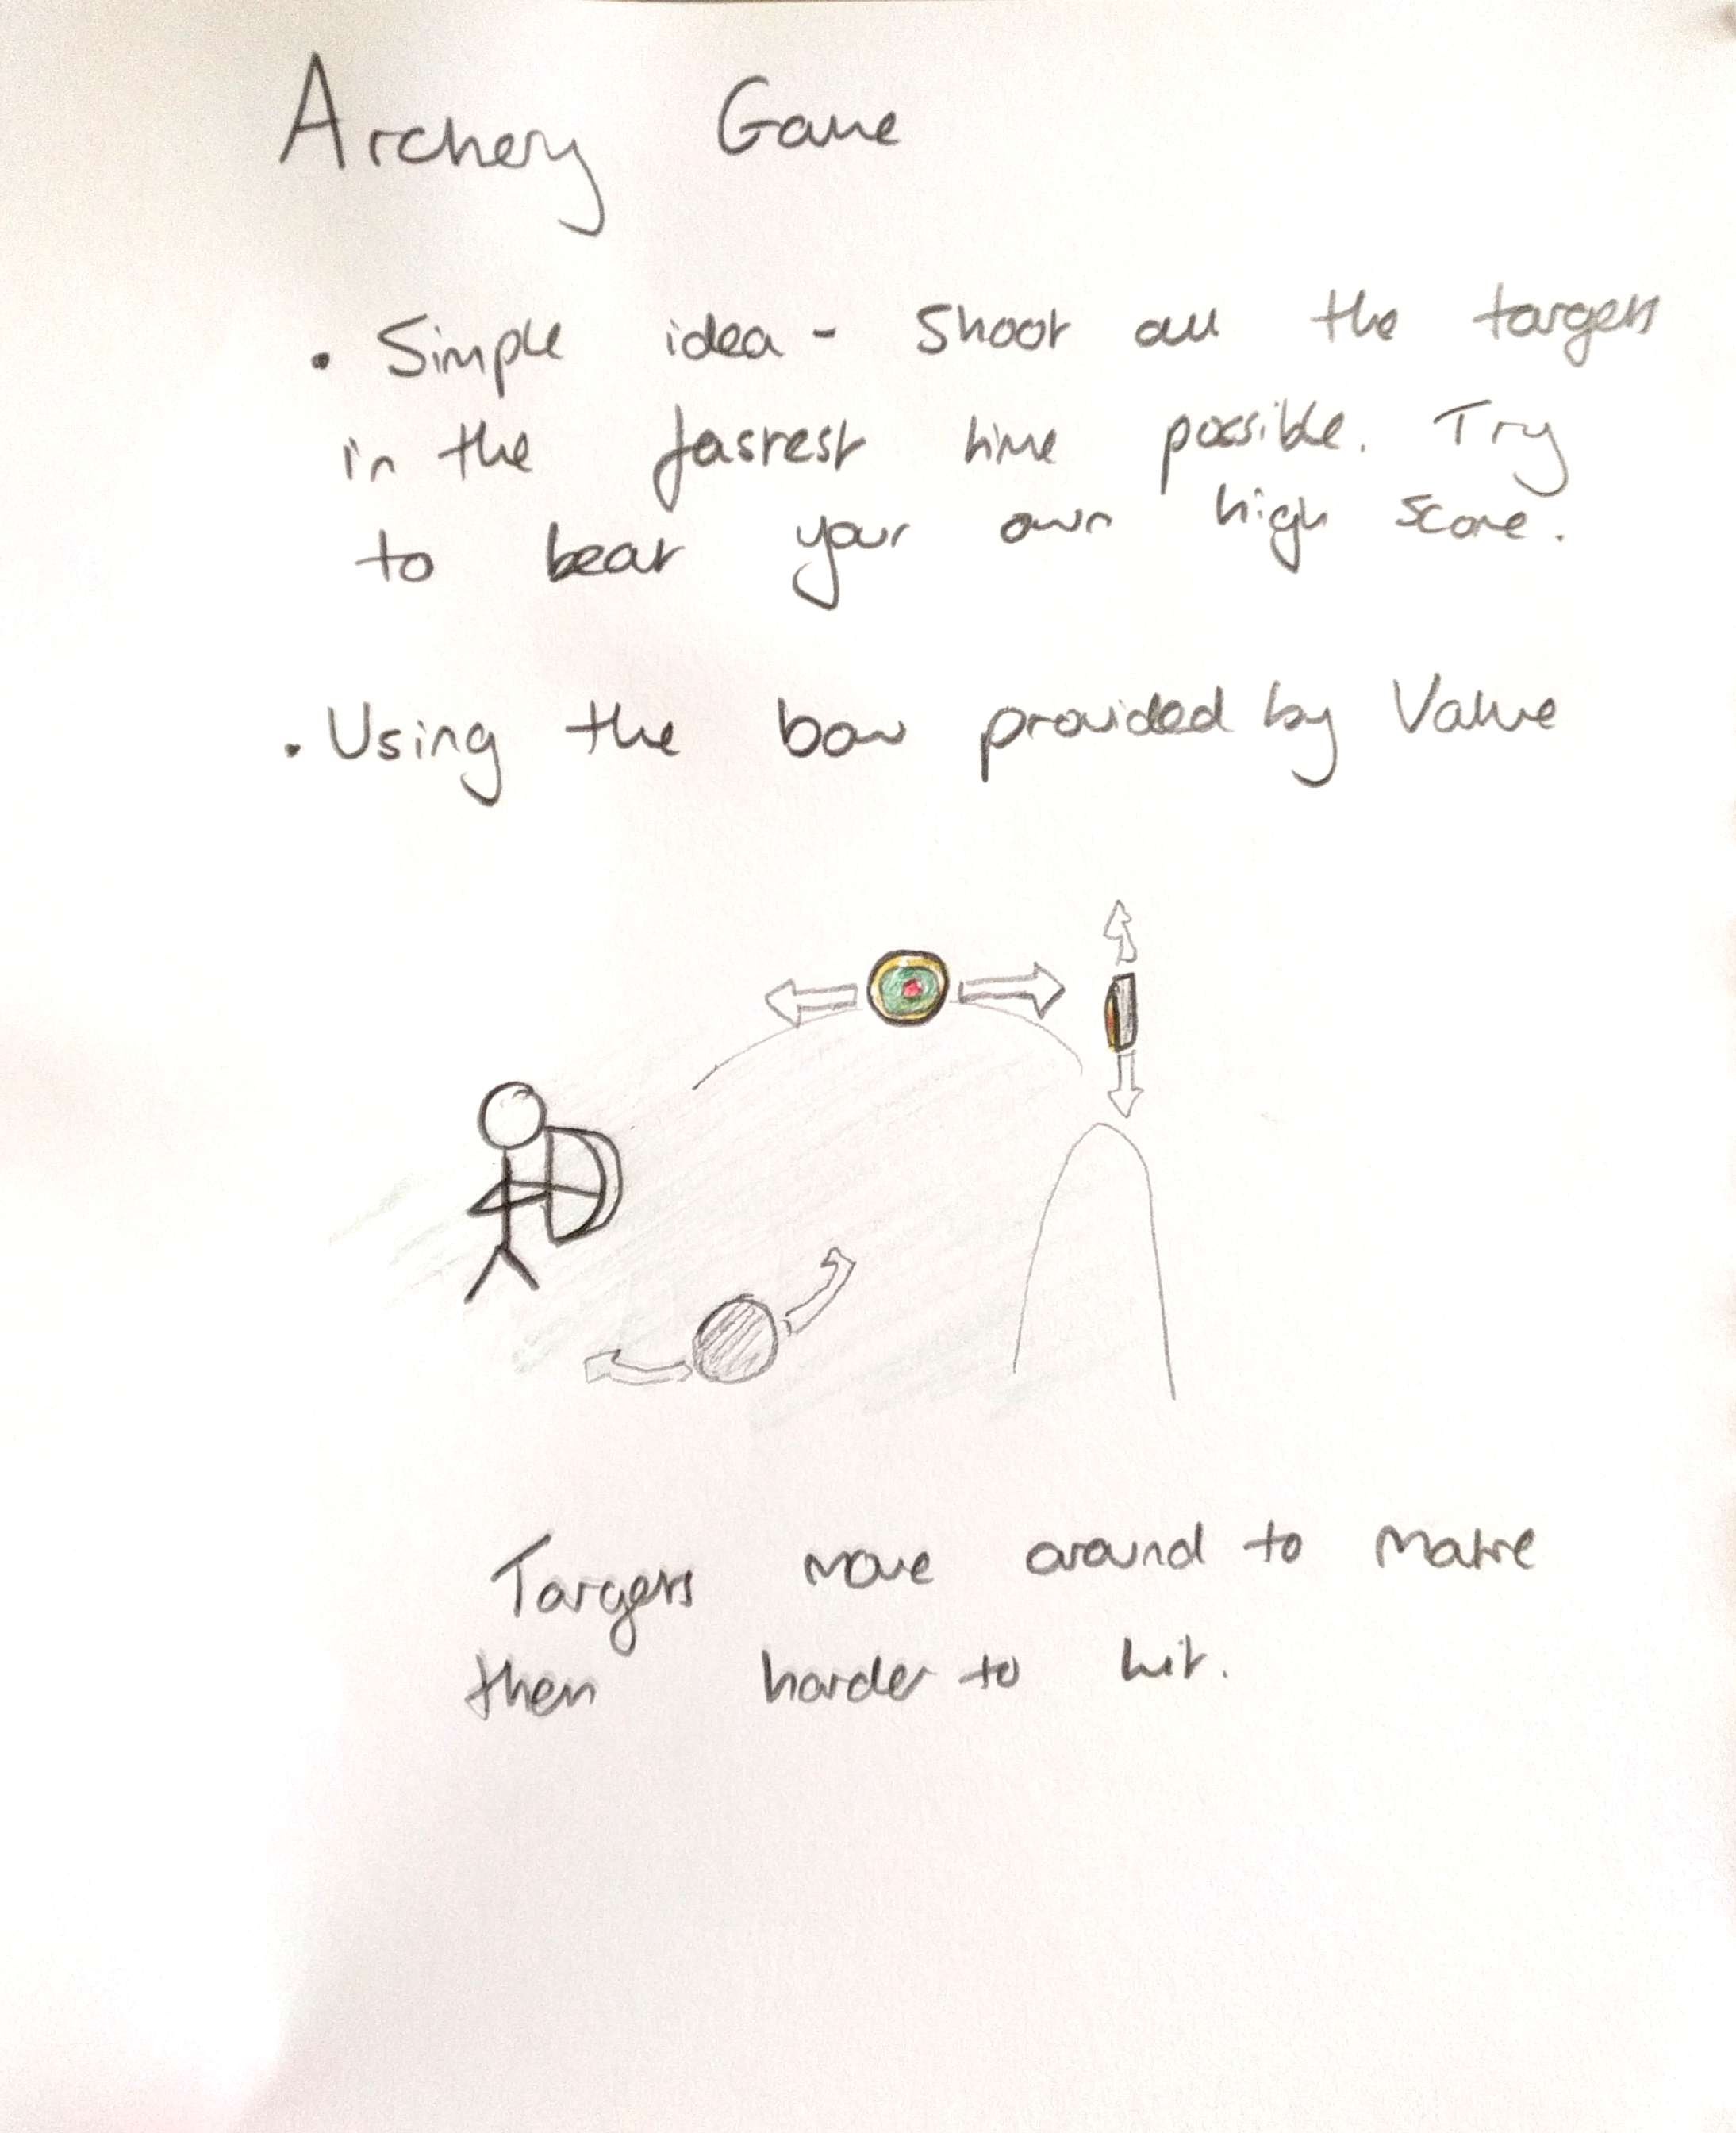 Archery Game
• Simple idea - Shoot all the targets
in the fastest time possible. Try
to beat your own high score.
• Using the bow provided by Valve
Targets move around to make
them harder to hit.